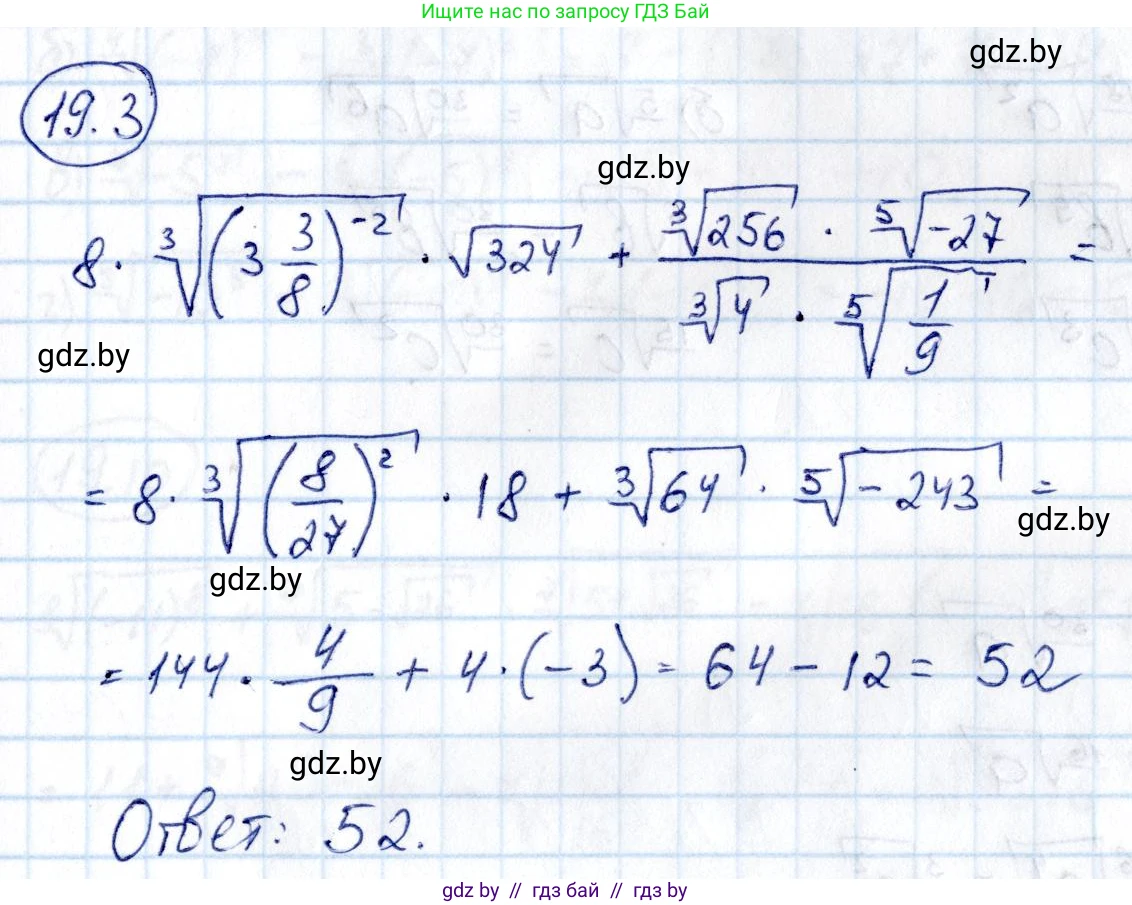 Ищите нас по запросу ГДЗ Бай
gdz.by
19.3
gdz.by
8 · ∛((3 3/8)^-2) · √324 + (∛256 · ⁵√-27) / (∛4 · ⁵√(1/9)) =
gdz.by
= 8 · ∛((8/27)^2) · 18 + ∛64 · ⁵√-243 =
gdz.by
gdz.by
= 144 · 4/9 + 4 · (-3) = 64 - 12 = 52
gdz.by
Ответ: 52.
gdz by // гдз бай // gdz by